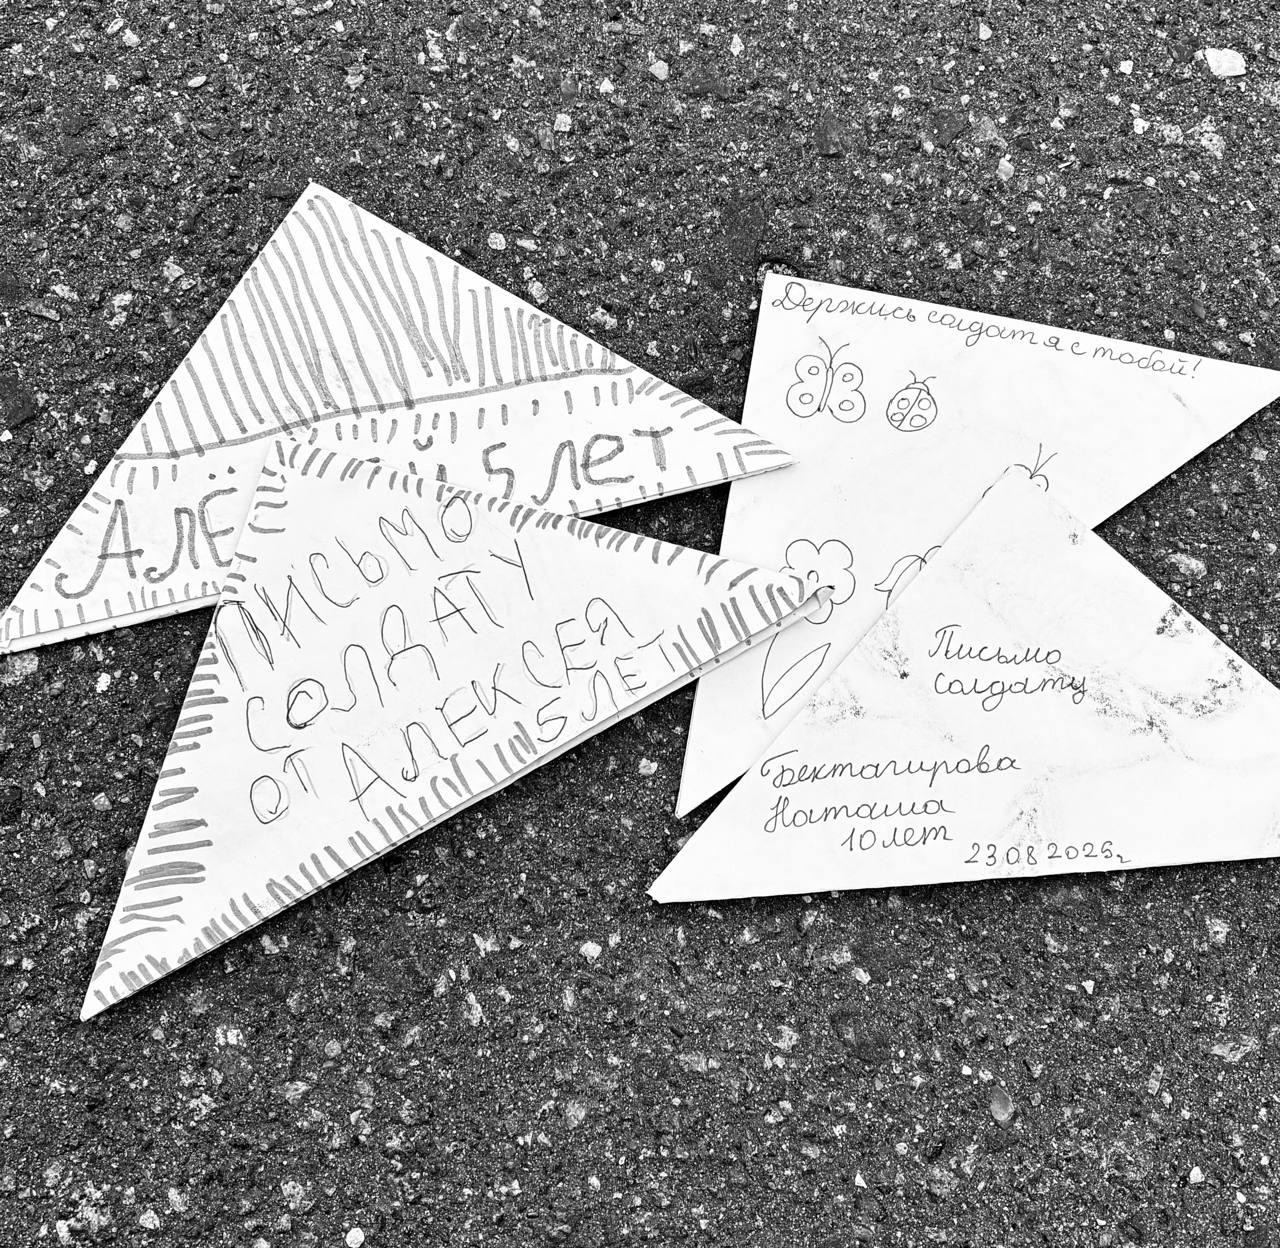 АЛЁ
Й 5 лет
ПИСЬМО
СОЛДАТУ
ОТ АЛЕКСЕЯ
5 ЛЕТ
Держись солдат я с тобой!
Письмо
солдату
Бектагирова
Наташа
10 лет
23 08 2025г